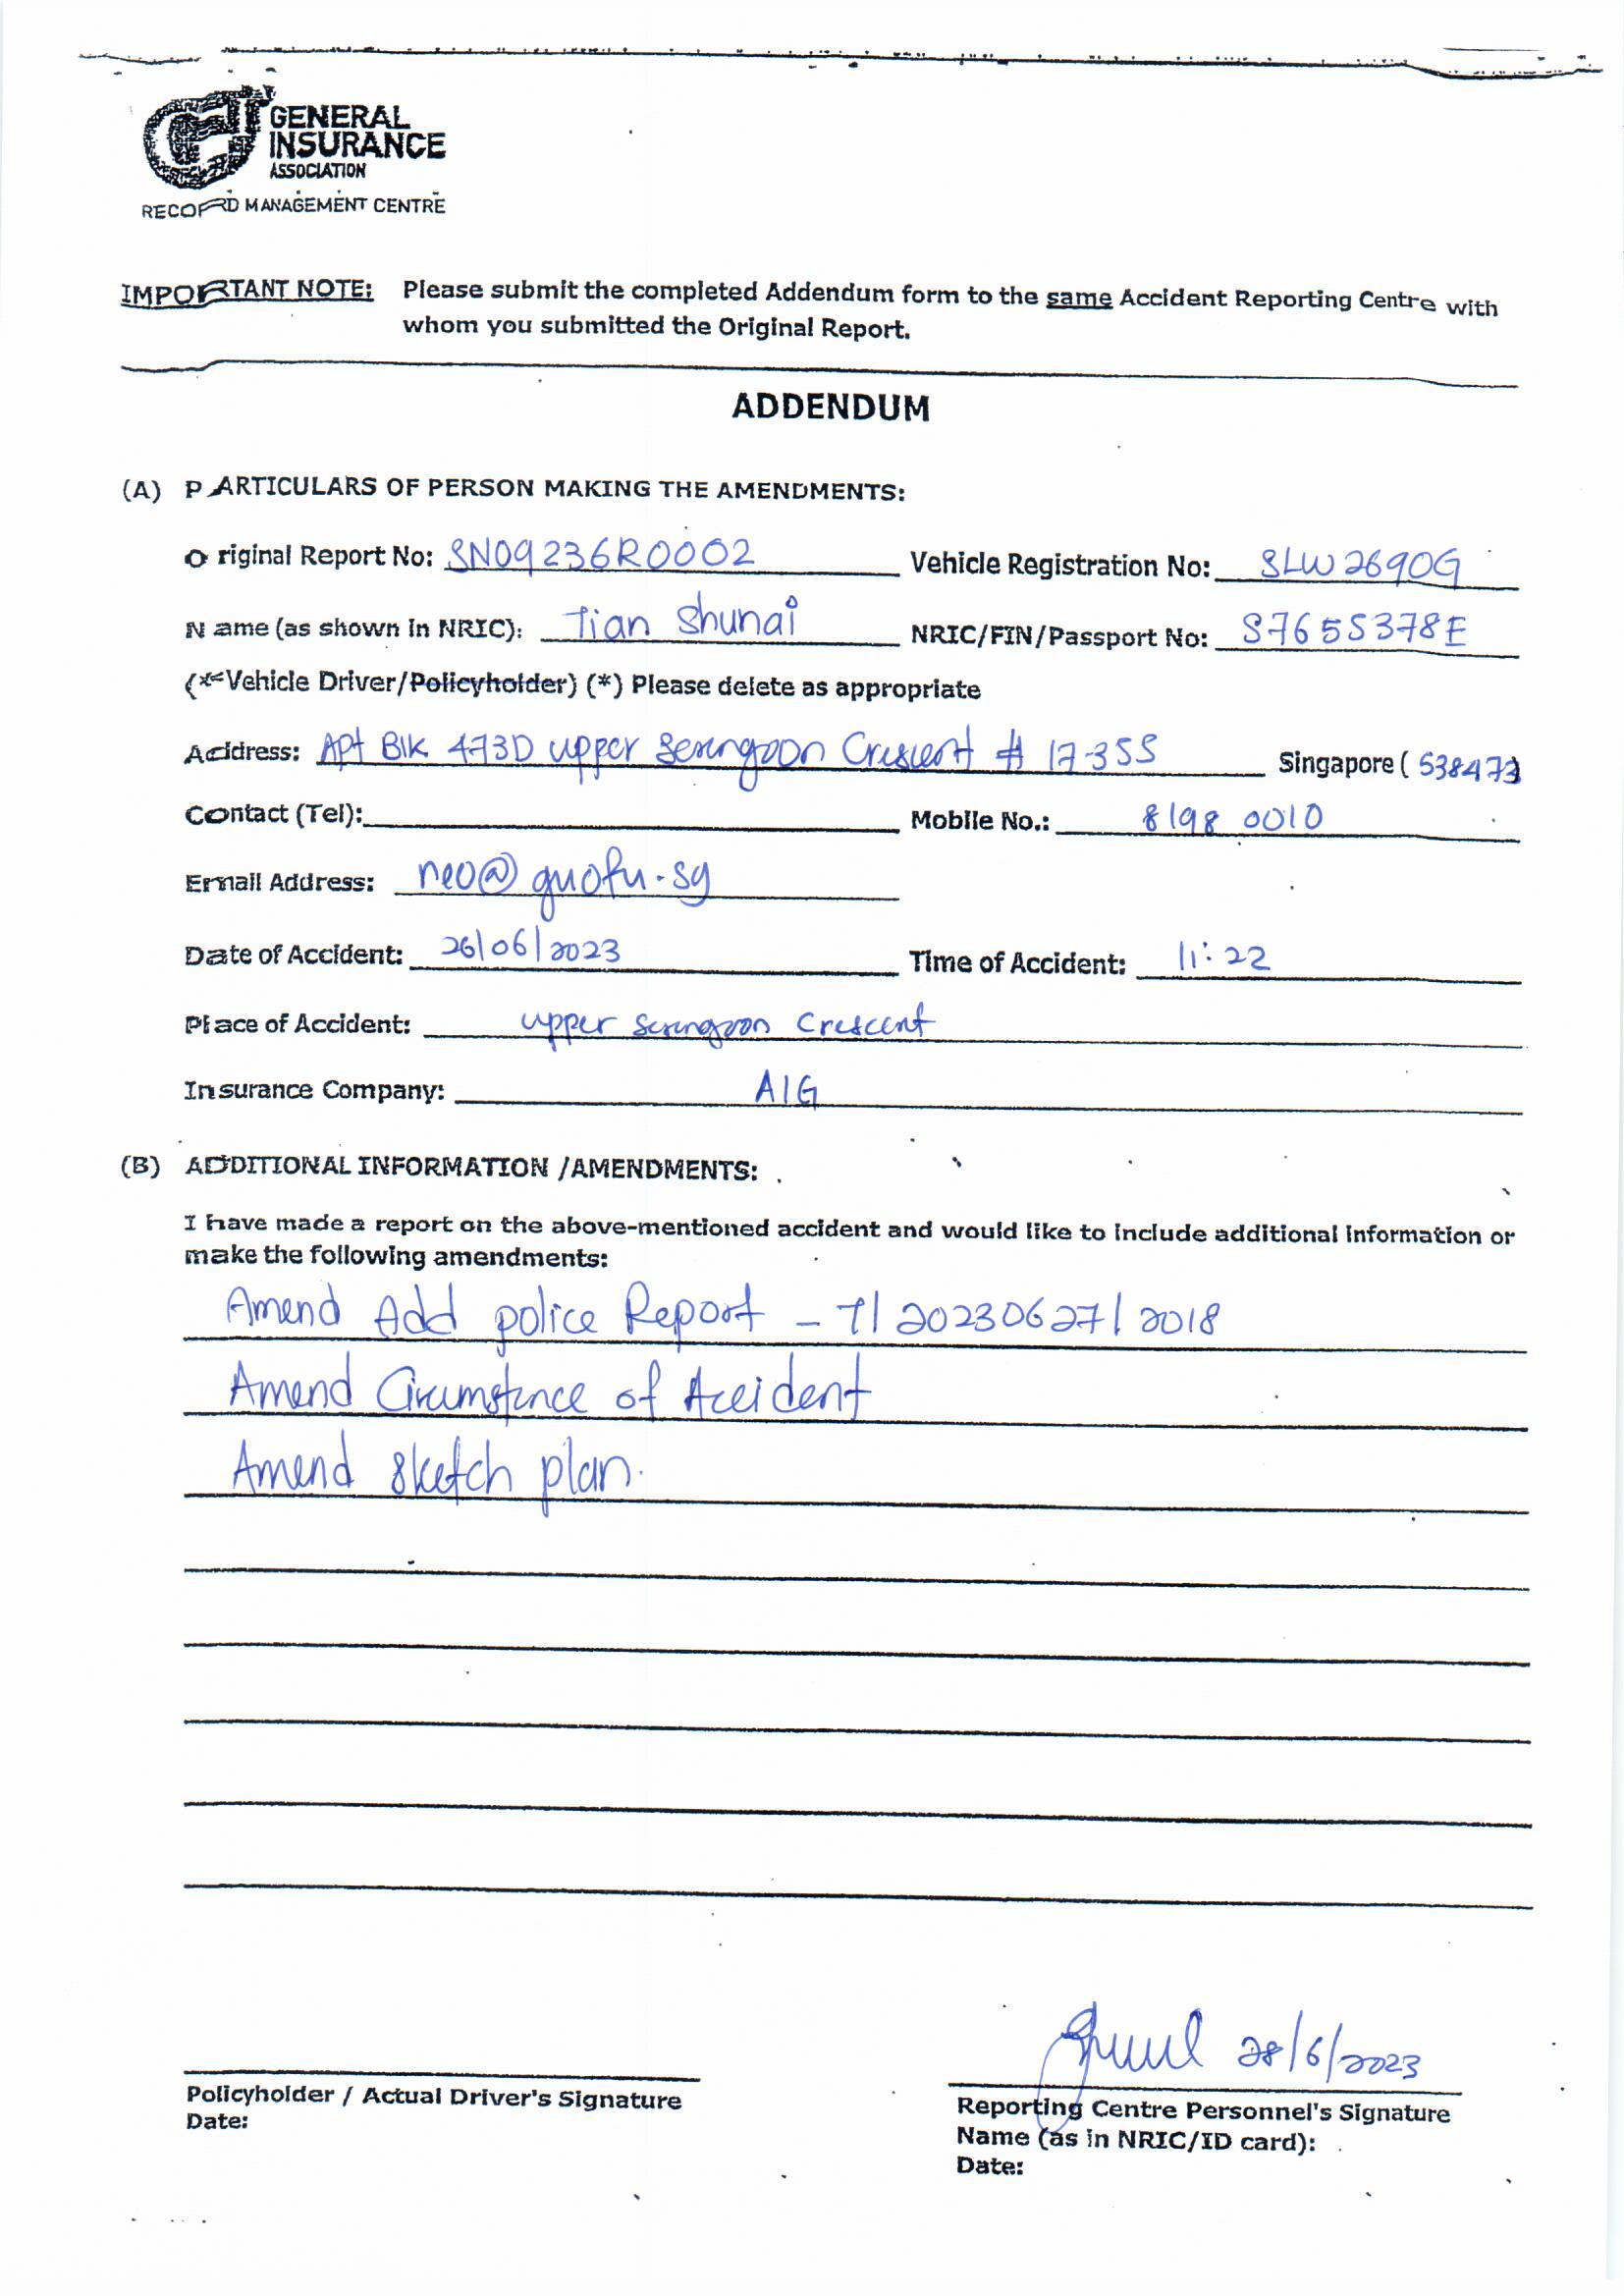 GENERAL
INSURANCE
ASSOCIATION
RECORD MANAGEMENT CENTRE
IMPORTANT NOTE: Please submit the completed Addendum form to the same Accident Reporting Centre with
whom you submitted the Original Report.
ADDENDUM
(A) PARTICULARS OF PERSON MAKING THE AMENDMENTS:
Original Report No: SN09236R0002 Vehicle Registration No: SLW2690G
Name (as shown in NRIC): Tian Shunai NRIC/FIN/Passport No: S7655378E
(*Vehicle Driver/Policyholder) (*) Please delete as appropriate
Address: Apt Blk 473D upper Serangoon Crescent # 17-355 Singapore (538473)
Contact (Tel): Mobile No.: 8198 0010
Email Address: neo@guofu.sg
Date of Accident: 26/06/2023 Time of Accident: 11:22
Place of Accident: upper Serangoon Crescent
Insurance Company: AIG
(B) ADDITIONAL INFORMATION /AMENDMENTS:
I have made a report on the above-mentioned accident and would like to include additional information or
make the following amendments:
Amend Add police Report - T/20230627/2018
Amend Circumstance of Accident
Amend sketch plan.
28/6/2023
Policyholder / Actual Driver's Signature
Date:
Reporting Centre Personnel's Signature
Name (as in NRIC/ID card):
Date: